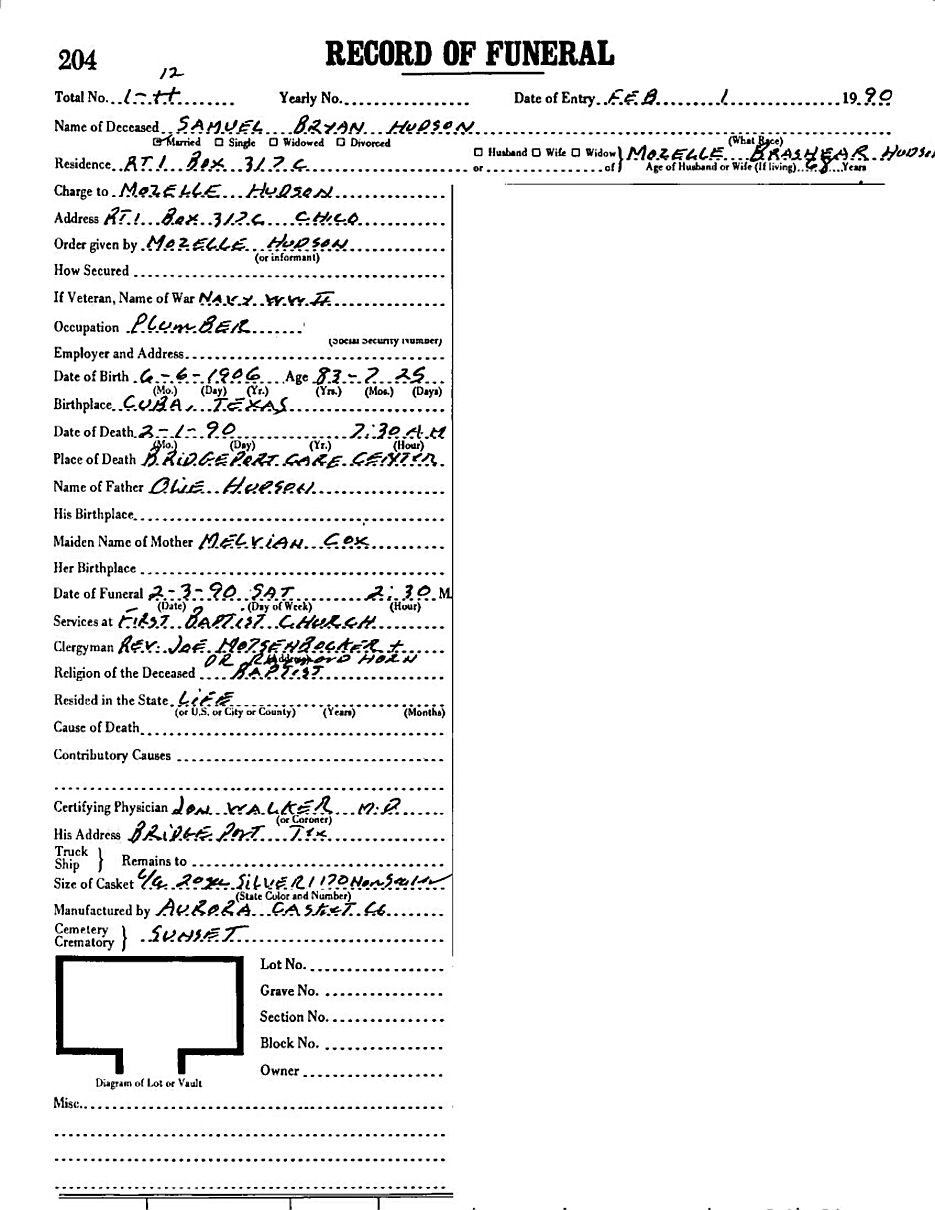 204
RECORD OF FUNERAL
12
Total No. 1-H Yearly No. Date of Entry FEB 1 1990
Name of Deceased SAMUEL BRYAN HUDSON
Married Single Widowed Divorced (What Race)
Husband Wife Widow MOZELLE BRASHEAR HUDSON
Residence RT 1 BOX 317C or of Age of Husband or Wife (If living) 68 Years
Charge to MOZELLE HUDSON
Address RT. 1 BOX 317C CHICO
Order given by MOZELLE HUDSON
(or informant)
How Secured
If Veteran, Name of War NAVY WW II
Occupation PLUMBER
(Social Security Number)
Employer and Address
Date of Birth 6-6-1906 Age 83-7 25
(Mo.) (Day) (Yr.) (Yrs.) (Mos.) (Days)
Birthplace CUBA, TEXAS
Date of Death 2-1-90 7:30 AM
(Mo.) (Day) (Yr.) (Hour)
Place of Death BRIDGEPORT CARE CENTER
Name of Father OLIE HUDSON
His Birthplace
Maiden Name of Mother MELVIAN COX
Her Birthplace
Date of Funeral 2-3-90 SAT 2:30 M
(Date) (Day of Week) (Hour)
Services at FIRST BAPTIST CHURCH
Clergyman REV. JOE MOTSENBOCKER +
DR HORN
Religion of the Deceased BAPTIST
Resided in the State LIFE
(or U.S. or City or County) (Years) (Months)
Cause of Death
Contributory Causes
Certifying Physician JON WALKER M.D
(or Coroner)
His Address BRIDGEPORT TEX
Truck
Ship } Remains to
Size of Casket 20 SILVER 1170
(State Color and Number)
Manufactured by AURORA CASKET Co
Cemetery
Crematory } SUNSET
Lot No.
Grave No.
Section No.
Block No.
Owner
Diagram of Lot or Vault
Misc.